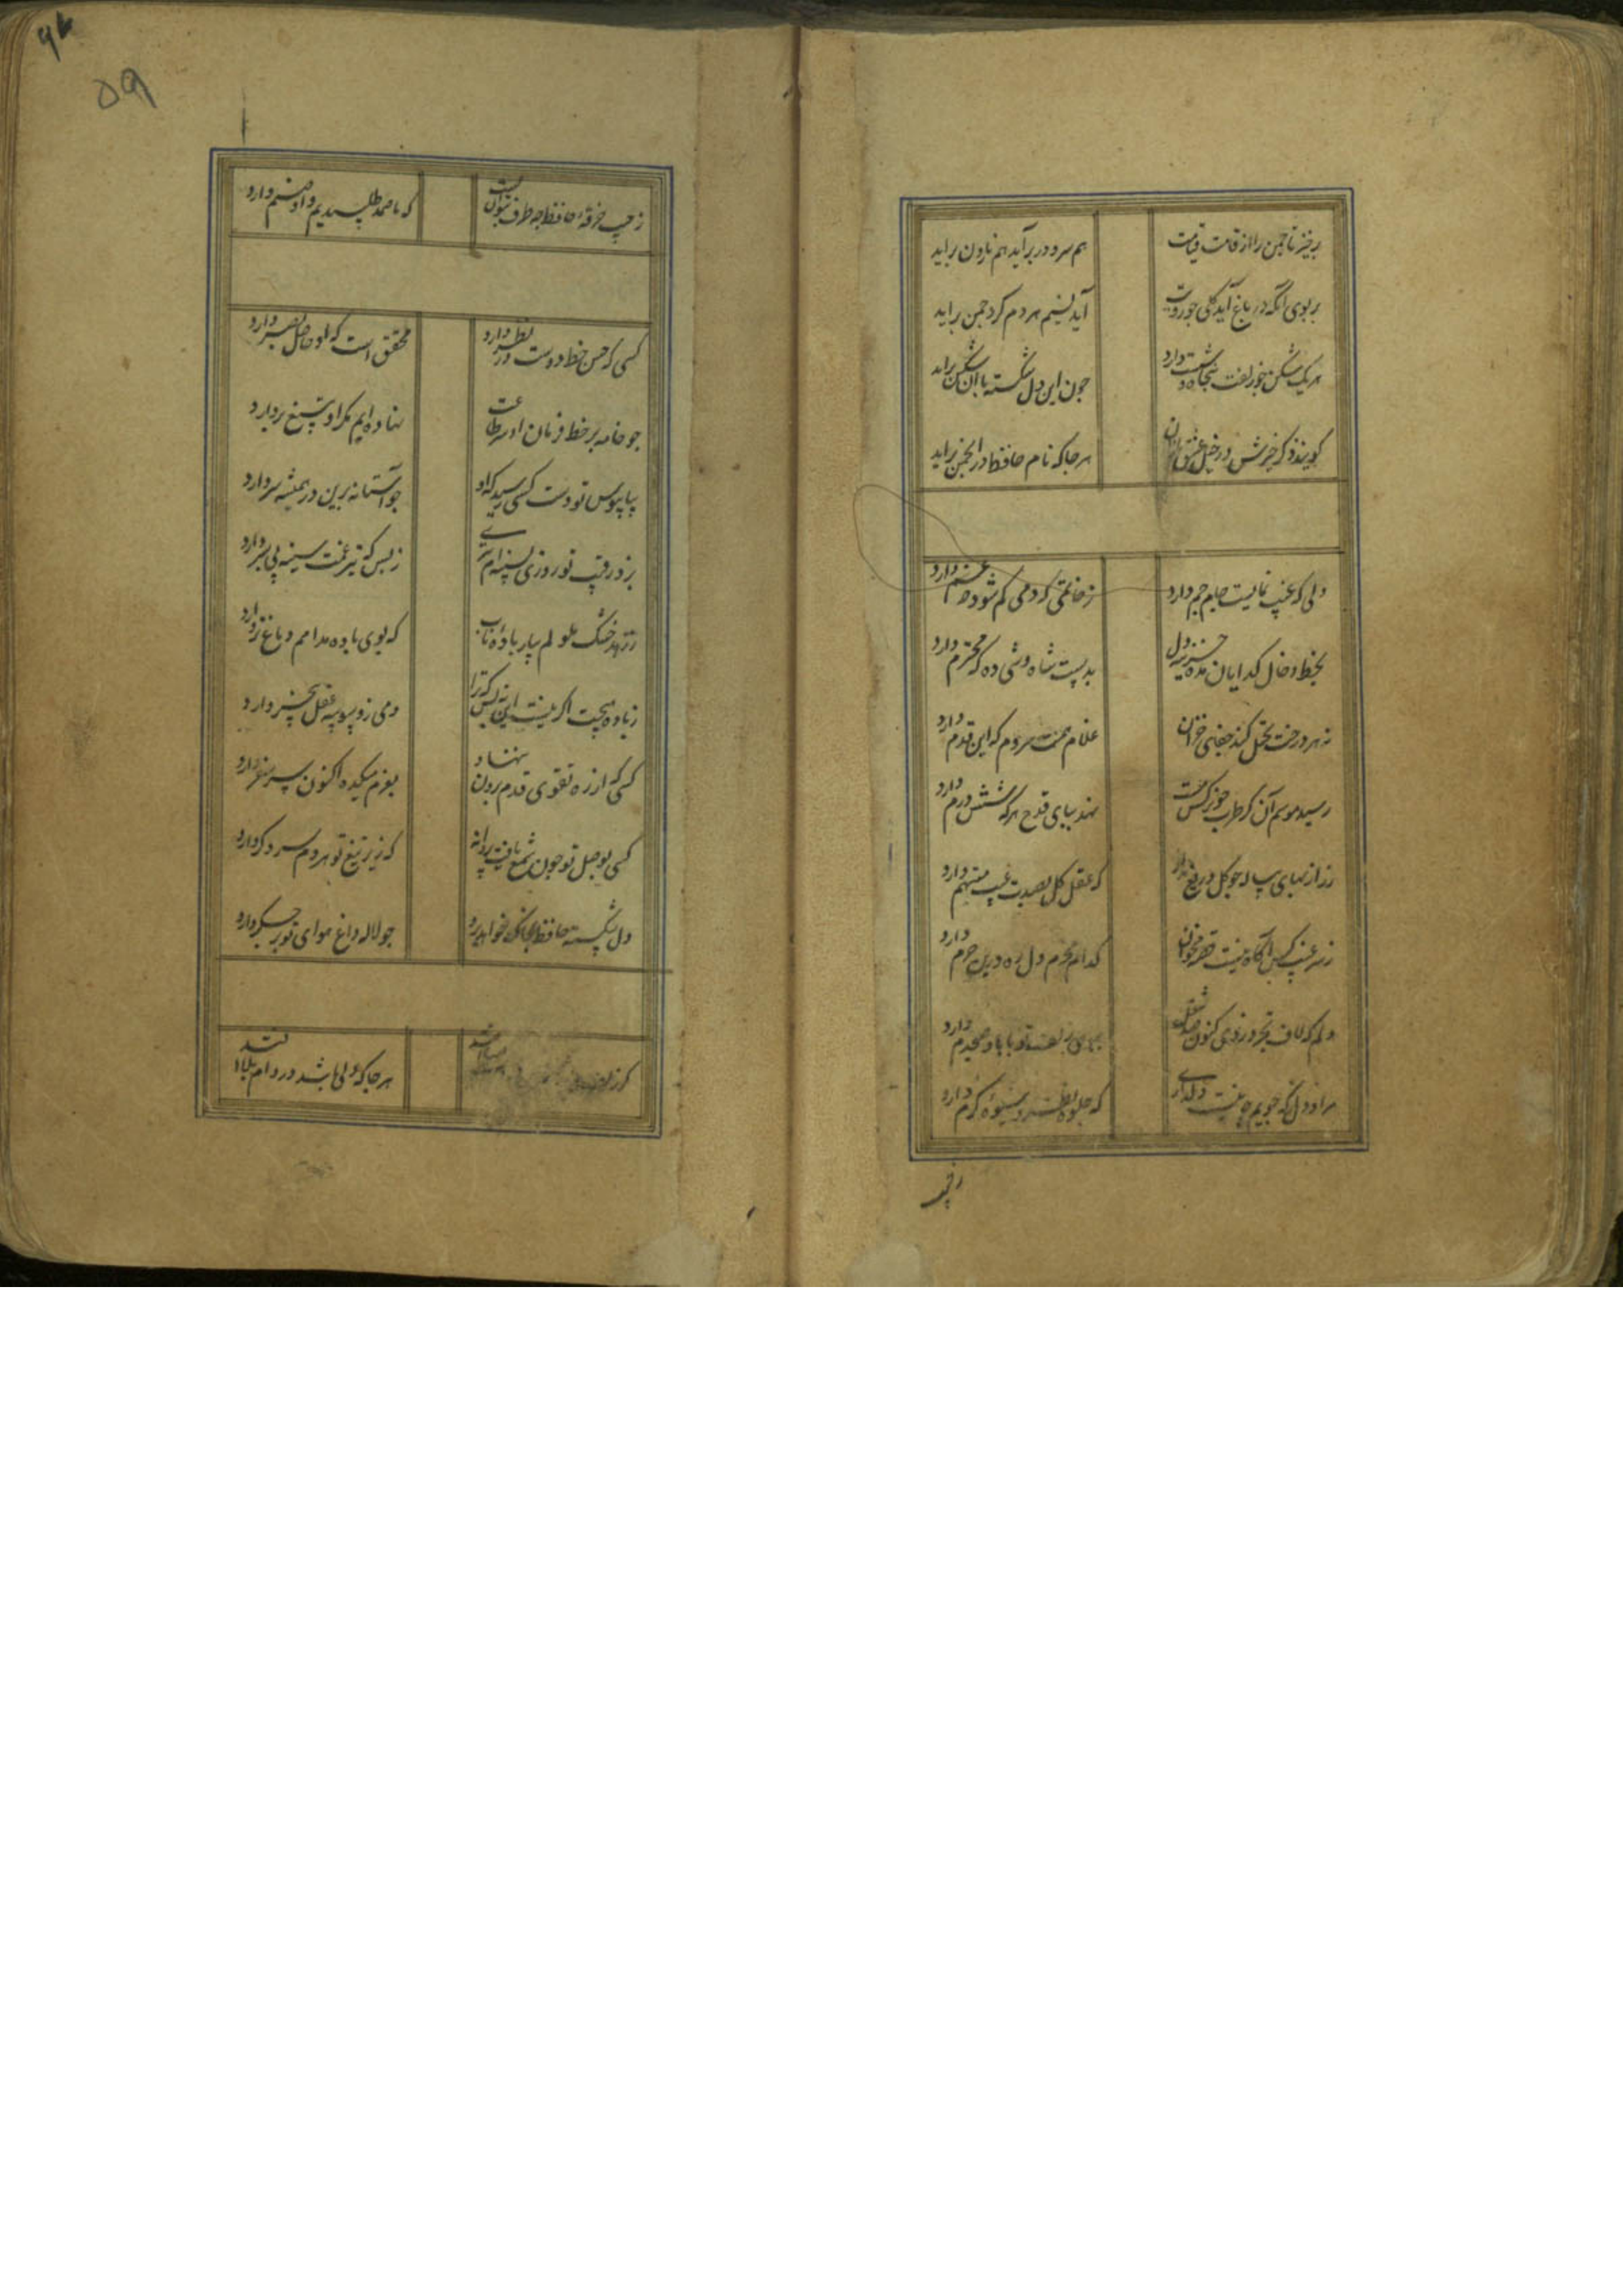 برخیز تا جمن را از قامت قیامت هم سرو در برآید هم نارون براید
بر بوی انکه در باغ آید کلی جو رویت آید نسیم هر دم کرد جمن براید
هر یک شکن جو زلفت پنجاه شست دارد جون این دل شکسته با آن شکن براید
کویند ذکر خیرش در خیل عشق بازان هر جا که نام حافظ در انجمن براید
دلی که غیب نمایست جام جم دارد ز خاتمی که دمی کم شود چه غم دارد
بخط و خال کدایان مده خزینه دل بدست شاه وشی ده که محترم دارد
نه هر درخت تحمل کند جفای خزان غلام همت سروم که این قدم دارد
رسید موسم آن کز طرب جو نرکس مست نهد بپای قدح هر که شش درم دارد
زر از بهای پیاله جو کل دریغ مدار که عقل کل بصدت عیب متهم دارد
ز سر غیب کس آکاه نیست قصه مخوان کدام محرم دل ره درین حرم دارد
دلم که لاف تجرد زدی کنون صد شغل ببوی زلف تو با باد صبحدم دارد
مراد دل ز که جویم چو نیست دلداری که جلوه نظر و شیوه کرم دارد
زجیب
59
ز جیب خرقه حافظ چه طرف بتوان بست که ما صمد طلبیدیم و او صنم دارد
کسی که حسن خط دوست در نظر دارد محقق است که او حاصل بصر دارد
جو خامه بر خط فرمان او سر طاعت نهاده ایم مکر او بتیغ بردارد
بپایبوس تو دست کسی رسید که او جو آستانه برین در همیشه سر دارد
بزد رقیب تو روزی بسینه ام تیری ز بس که تیر غمت سینه بی سپر دارد
ز زهد خشک ملولم بیار باده ناب که بوی باده مدامم دماغ تر دارد
ز باده هیچت اکر نیست این نه بس که ترا دمی ز وسوسه عقل بیخبر دارد
کسی که از ره تقوی قدم برون ننهاد بعزم میکده اکنون سر سفر دارد
کسی بوصل تو جون شمع یافت پروانه که زیر تیغ تو هر دم سر دکر دارد
دل شکسته حافظ بخاک خواهد برد جو لاله داغ هوای که بر جکر دارد
کر زلف هر جا که دلی باشد در دام بلا افتد